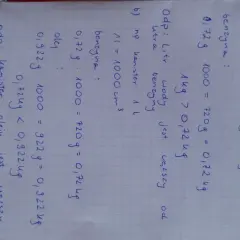 benzyna:
0,72g · 1000 = 720g = 0,72kg
1kg > 0,72kg
Odp: Litr wody jest cięższy od
litra benzyny
b) np kanister 1 l
1l = 1000cm³
benzyna:
0,72g · 1000 = 720g = 0,72kg
olej:
0,922g · 1000 = 922g = 0,922kg
0,72kg < 0,922kg
olej jest